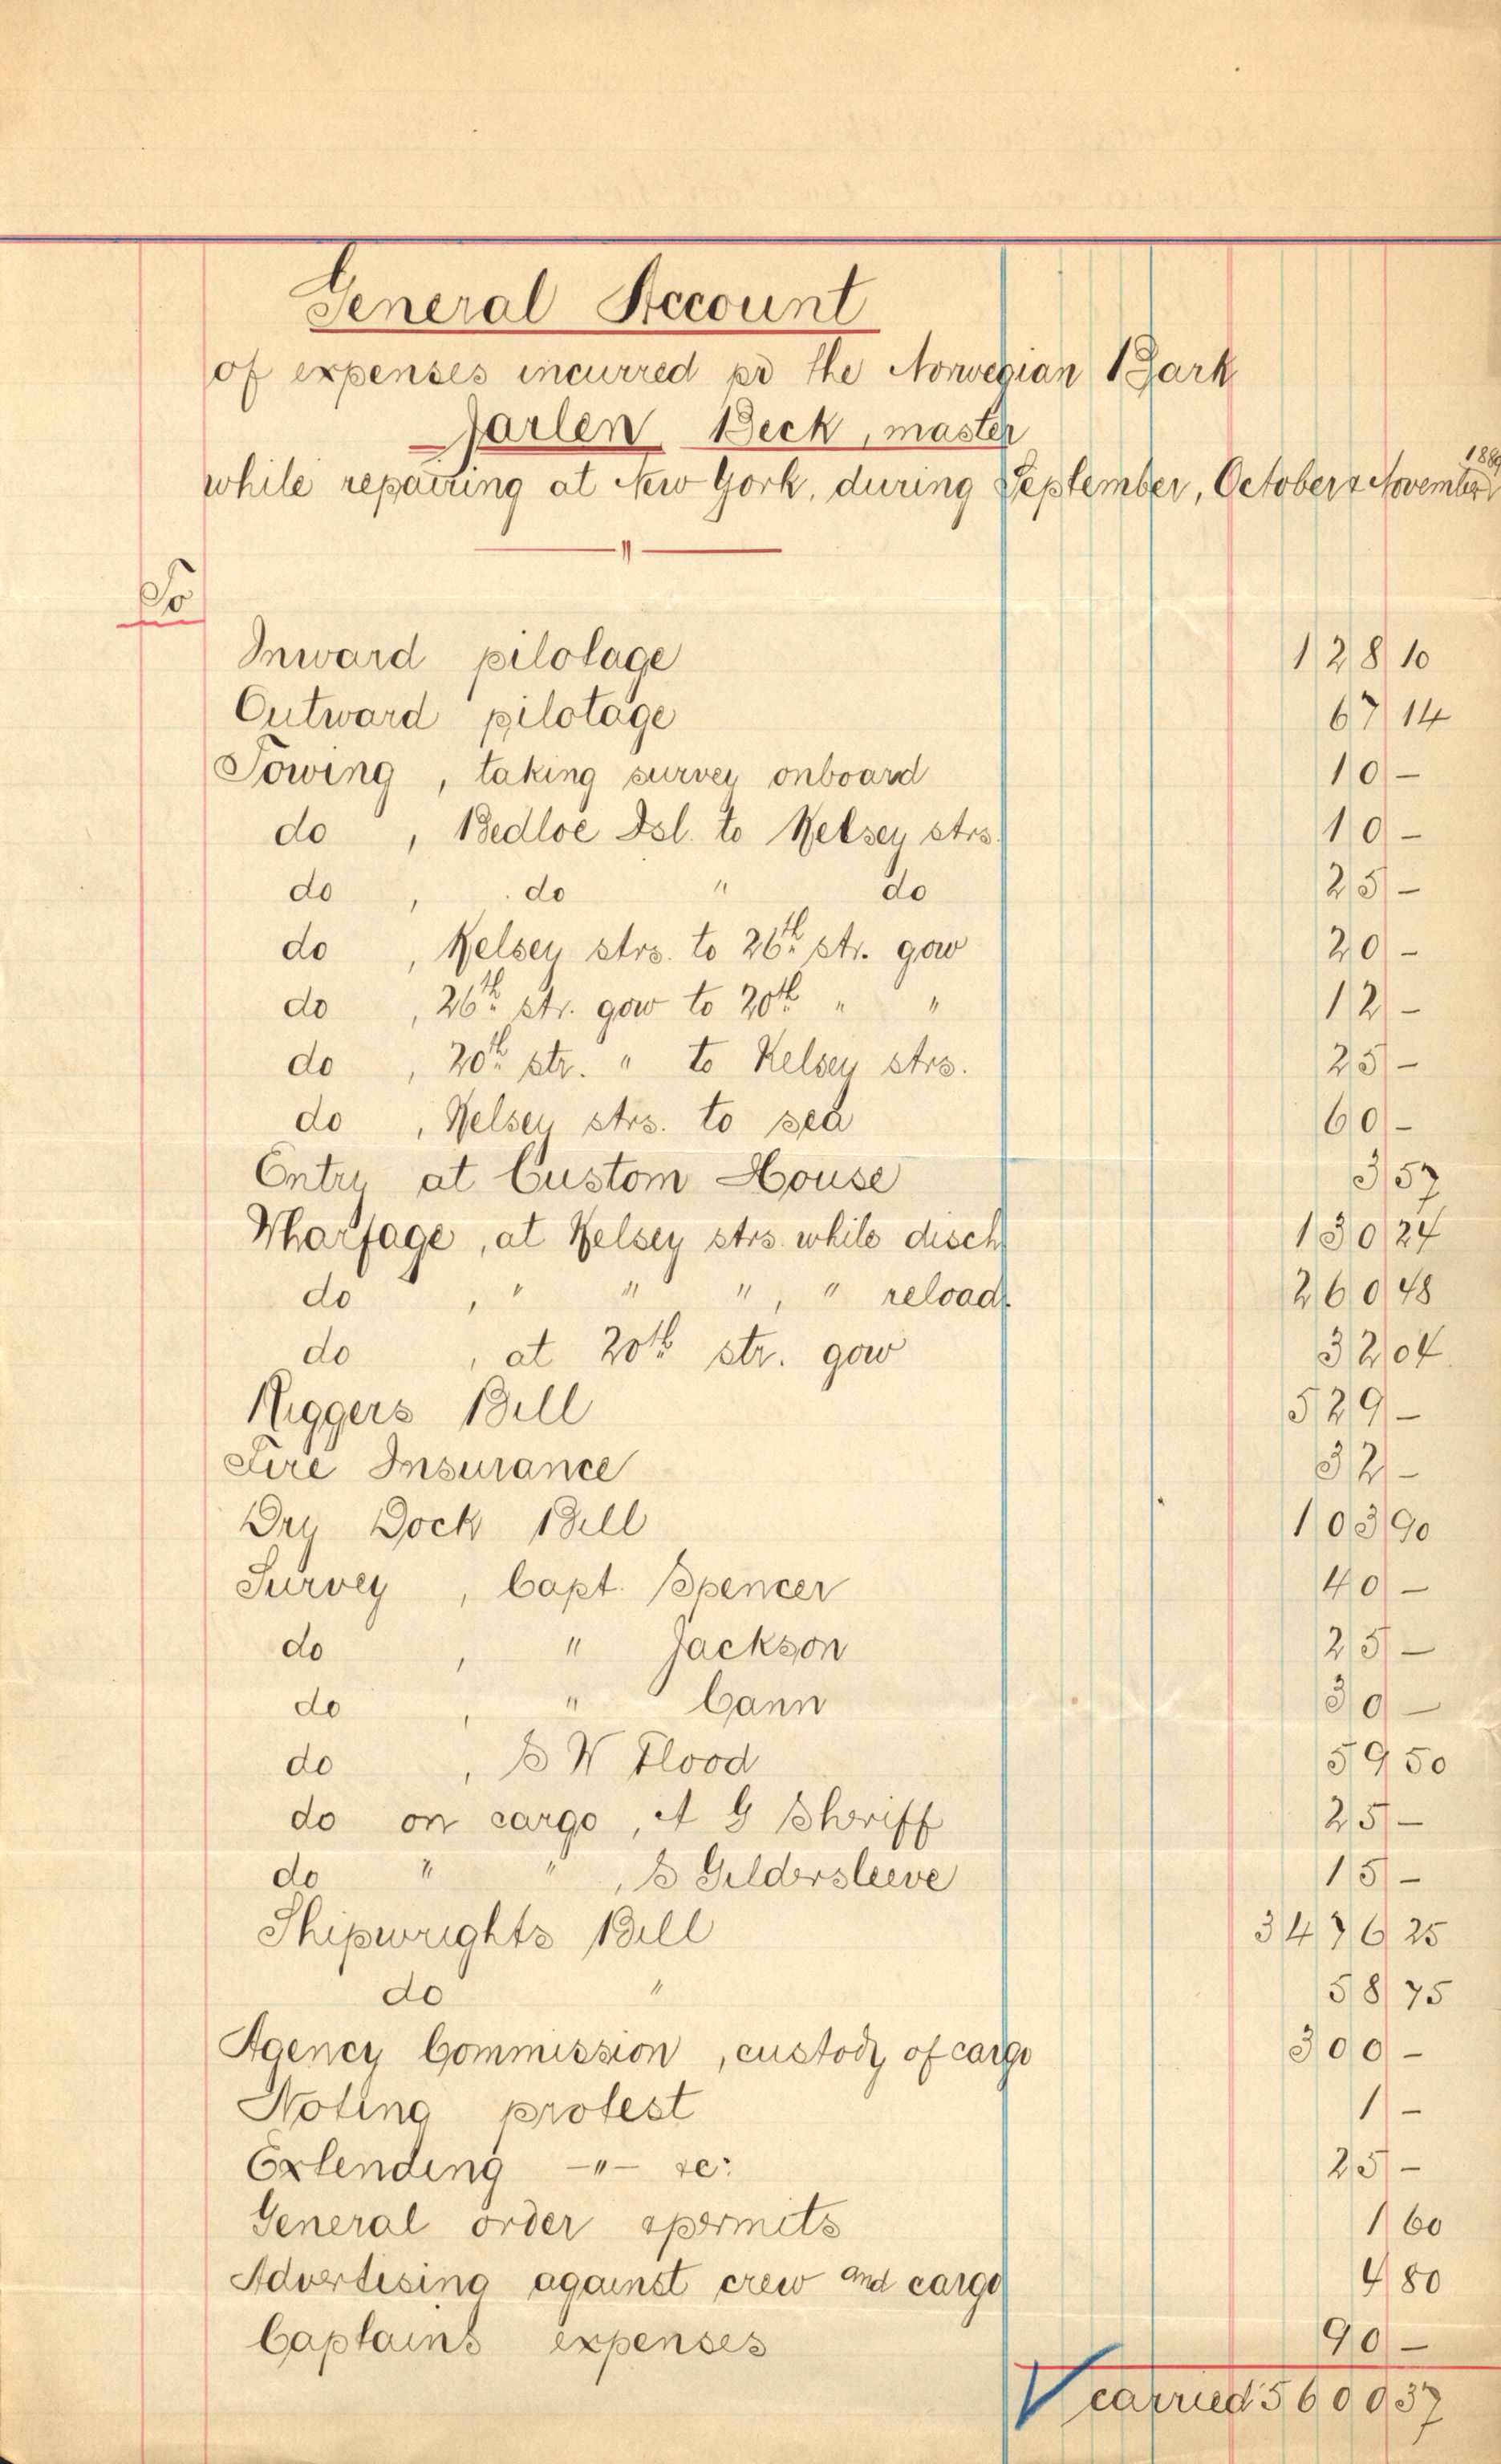 General Account
of expenses incurred pr the Norwegian Bark
Jarlen Beck, master
while repairing at New York, during September, October & November 188
To
Inward pilotage 128 10
Outward pilotage 67 14
Towing, taking survey onboard 10 -
do, Bedloe Isl. to Kelsey strs. 10 -
do, do " do 25 -
do, Kelsey strs. to 26th str. gow 20 -
do, 26th str. gow to 20th " " 12 -
do, 20th str. " to Kelsey strs. 25 -
do, Kelsey strs. to sea 60 -
Entry at Custom House 3 57
Wharfage, at Kelsey strs. while disch 130 24
do, " " ", " reload. 260 48
do, at 20th str. gow 32 04
Riggers Bill 529 -
Fire Insurance 32 -
Dry Dock Bill 103 90
Survey, Capt. Spencer 40 -
do, " Jackson 25 -
do, " Cann 30 -
do, S W Flood 59 50
do on cargo, A G Shriff 25 -
do " ", S Gildersleeve 15 -
Shipwrights Bill 3476 25
do " 58 75
Agency Commission, custody of cargo 300 -
Noting protest 1 -
Extending -"- &c: 25 -
General order & permits 1 60
Advertising against crew and cargo 4 80
Captains expenses 90 -
carried 5600 37